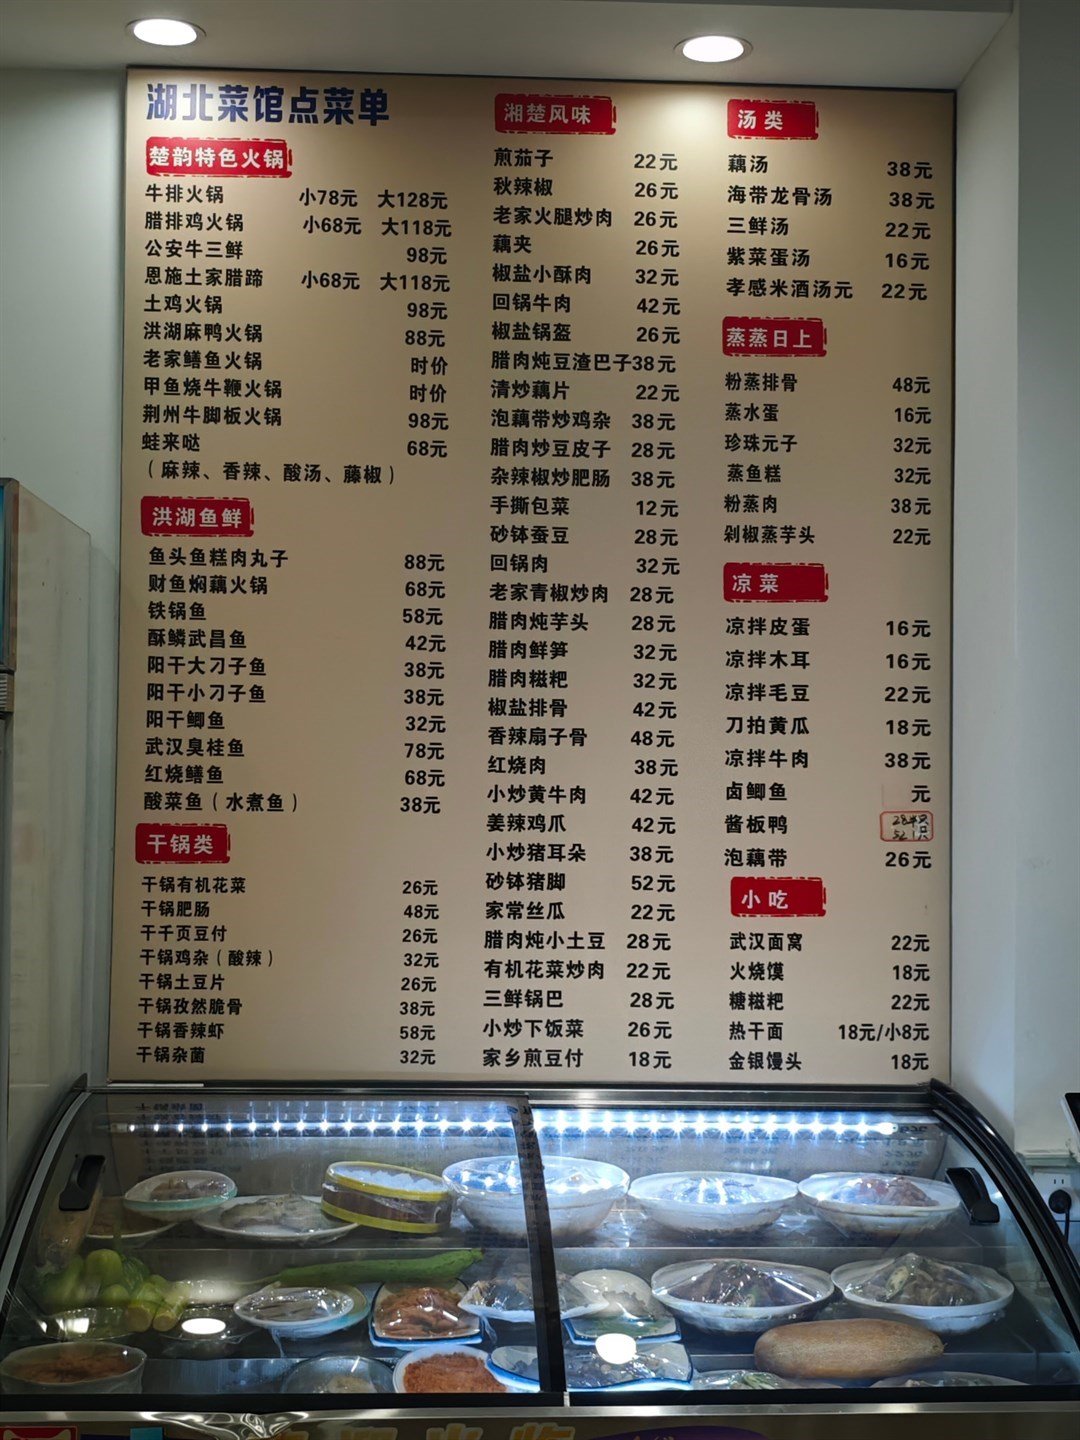 湖北菜馆点菜单
楚韵特色火锅
牛排火锅 小78元 大128元
腊排鸡火锅 小68元 大118元
公安牛三鲜 98元
恩施土家腊蹄 小68元 大118元
土鸡火锅 98元
洪湖麻鸭火锅 88元
老家鳝鱼火锅 时价
甲鱼烧牛鞭火锅 时价
荆州牛脚板火锅 98元
蛙来哒 68元
（麻辣、香辣、酸汤、藤椒）
洪湖鱼鲜
鱼头鱼糕肉丸子 88元
财鱼焖藕火锅 68元
铁锅鱼 58元
酥鳞武昌鱼 42元
阳干大刁子鱼 38元
阳干小刁子鱼 38元
阳干鲫鱼 32元
武汉臭桂鱼 78元
红烧鳝鱼 68元
酸菜鱼（水煮鱼） 38元
干锅类
干锅有机花菜 26元
干锅肥肠 48元
干千页豆付 26元
干锅鸡杂（酸辣） 32元
干锅土豆片 26元
干锅孜然脆骨 38元
干锅香辣虾 58元
干锅杂菌 32元
湘楚风味
煎茄子 22元
秋辣椒 26元
老家火腿炒肉 26元
藕夹 26元
椒盐小酥肉 32元
回锅牛肉 42元
椒盐锅盔 26元
腊肉炖豆渣巴子38元
清炒藕片 22元
泡藕带炒鸡杂 38元
腊肉炒豆皮子 28元
杂辣椒炒肥肠 38元
手撕包菜 12元
砂钵蚕豆 28元
回锅肉 32元
老家青椒炒肉 28元
腊肉炖芋头 28元
腊肉鲜笋 32元
腊肉糍粑 32元
椒盐排骨 42元
香辣扇子骨 48元
红烧肉 38元
小炒黄牛肉 42元
姜辣鸡爪 42元
小炒猪耳朵 38元
砂钵猪脚 52元
家常丝瓜 22元
腊肉炖小土豆 28元
有机花菜炒肉 22元
三鲜锅巴 28元
小炒下饭菜 26元
家乡煎豆付 18元
汤类
藕汤 38元
海带龙骨汤 38元
三鲜汤 22元
紫菜蛋汤 16元
孝感米酒汤元 22元
蒸蒸日上
粉蒸排骨 48元
蒸水蛋 16元
珍珠元子 32元
蒸鱼糕 32元
粉蒸肉 38元
剁椒蒸芋头 22元
凉菜
凉拌皮蛋 16元
凉拌木耳 16元
凉拌毛豆 22元
刀拍黄瓜 18元
凉拌牛肉 38元
卤鲫鱼 元
酱板鸭 28半 52
泡藕带 26元
小吃
武汉面窝 22元
火烧馍 18元
糖糍粑 22元
热干面 18元/小8元
金银馒头 18元